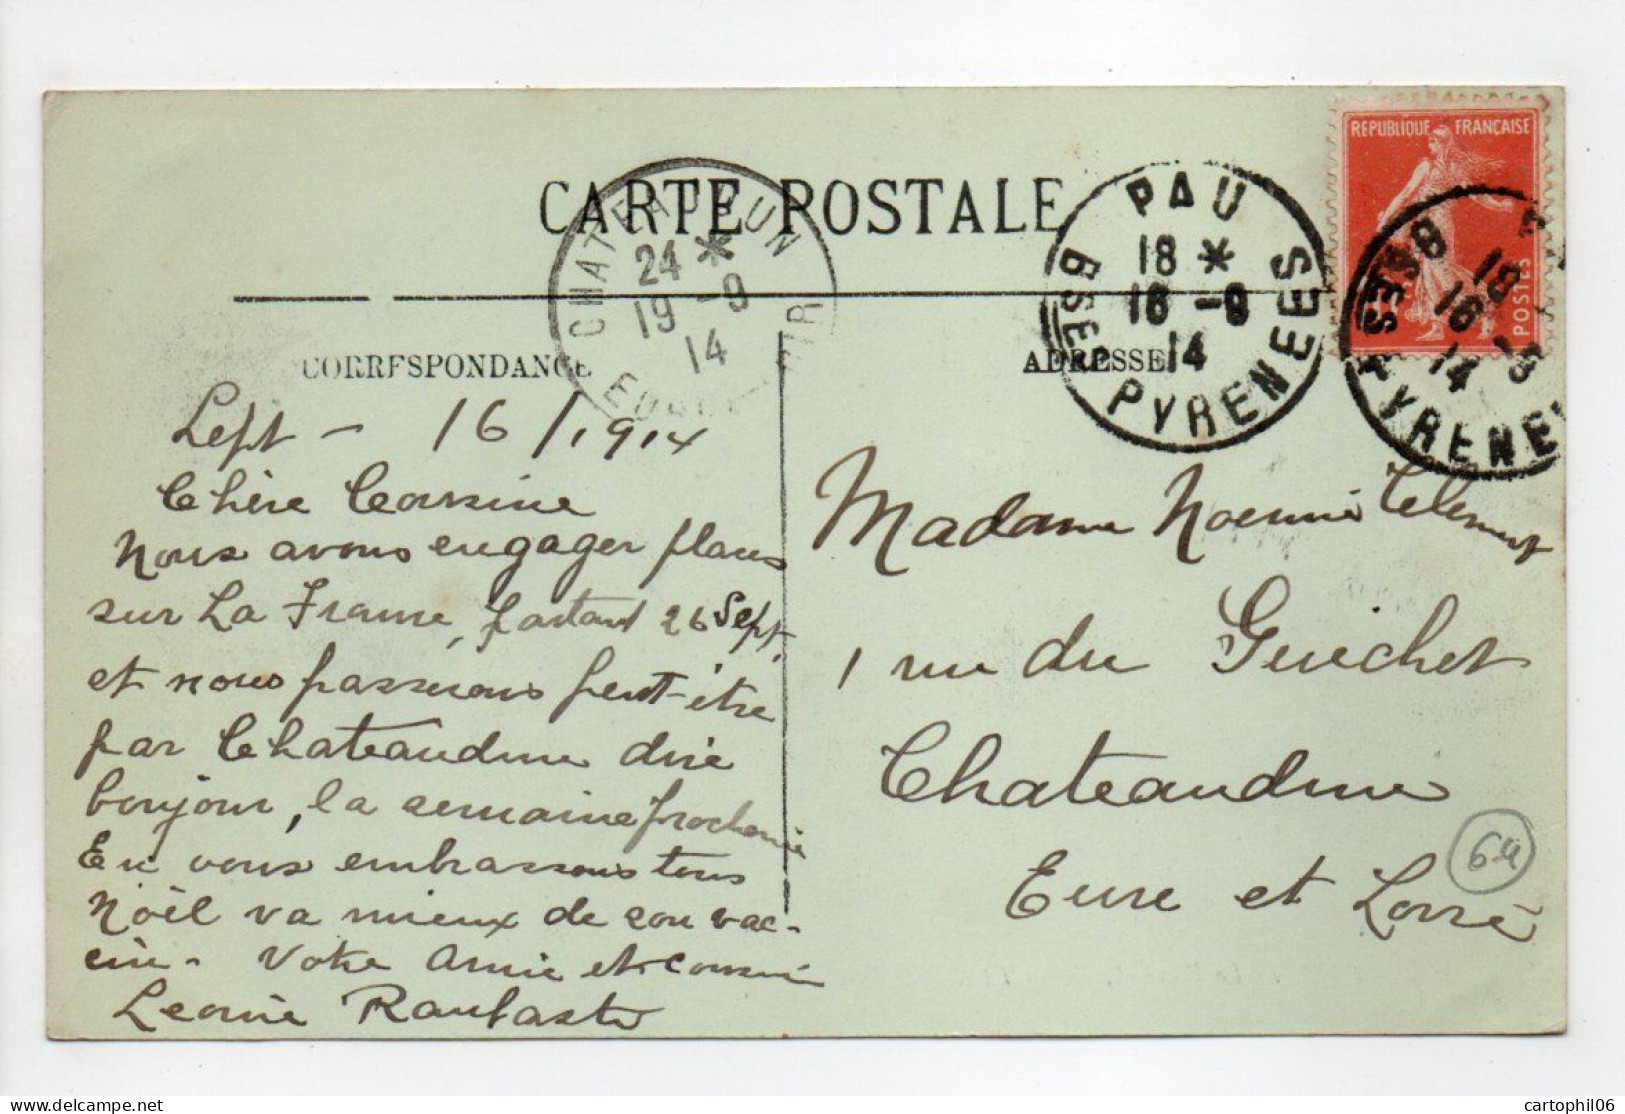 CARTE POSTALE
CHATEAUDUN
24 *
19 -9
14
EURE
PAU
18 *
16 -9
14
BSES PYRENEES
REPUBLIQUE FRANCAISE
POSTES
18
16 -9
14
BSES PYRENEE
CORRESPONDANCE
ADRESSE
Sept - 16/1914
Chère Cousine
Nous avons engager places
sur La France, partant 26 Sept.
et nous passerons peut-être
par Chateaudun dire
bonjour, la semaine prochaine
En vous embrassons tous
Noël va mieux de son vac-
cin - Votre Amie et cousine
Leonie
Madame Noemie Clement
1 rue du Guichet
Chateaudun
Eure et Loire
64
cartophil06